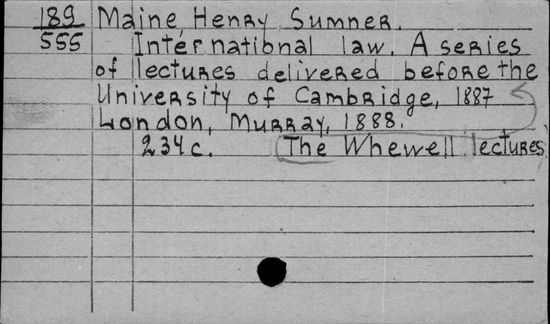 189 Maine, Henry Sumner.
555 International law. A series
of lectures delivered before the
University of Cambridge, 1887
London, Murray, 1888.
234 c. The Whewell lectures